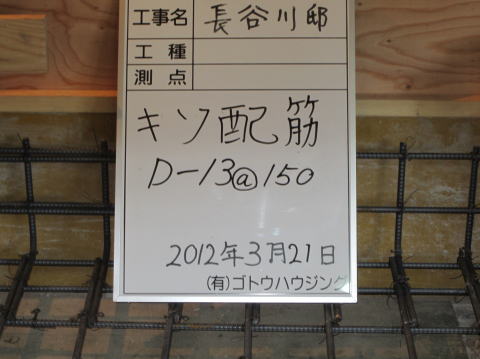 工事名 長谷川邸
工種
測点
キソ配筋
D-13@150
2012年3月21日
(有)ゴトウハウジング